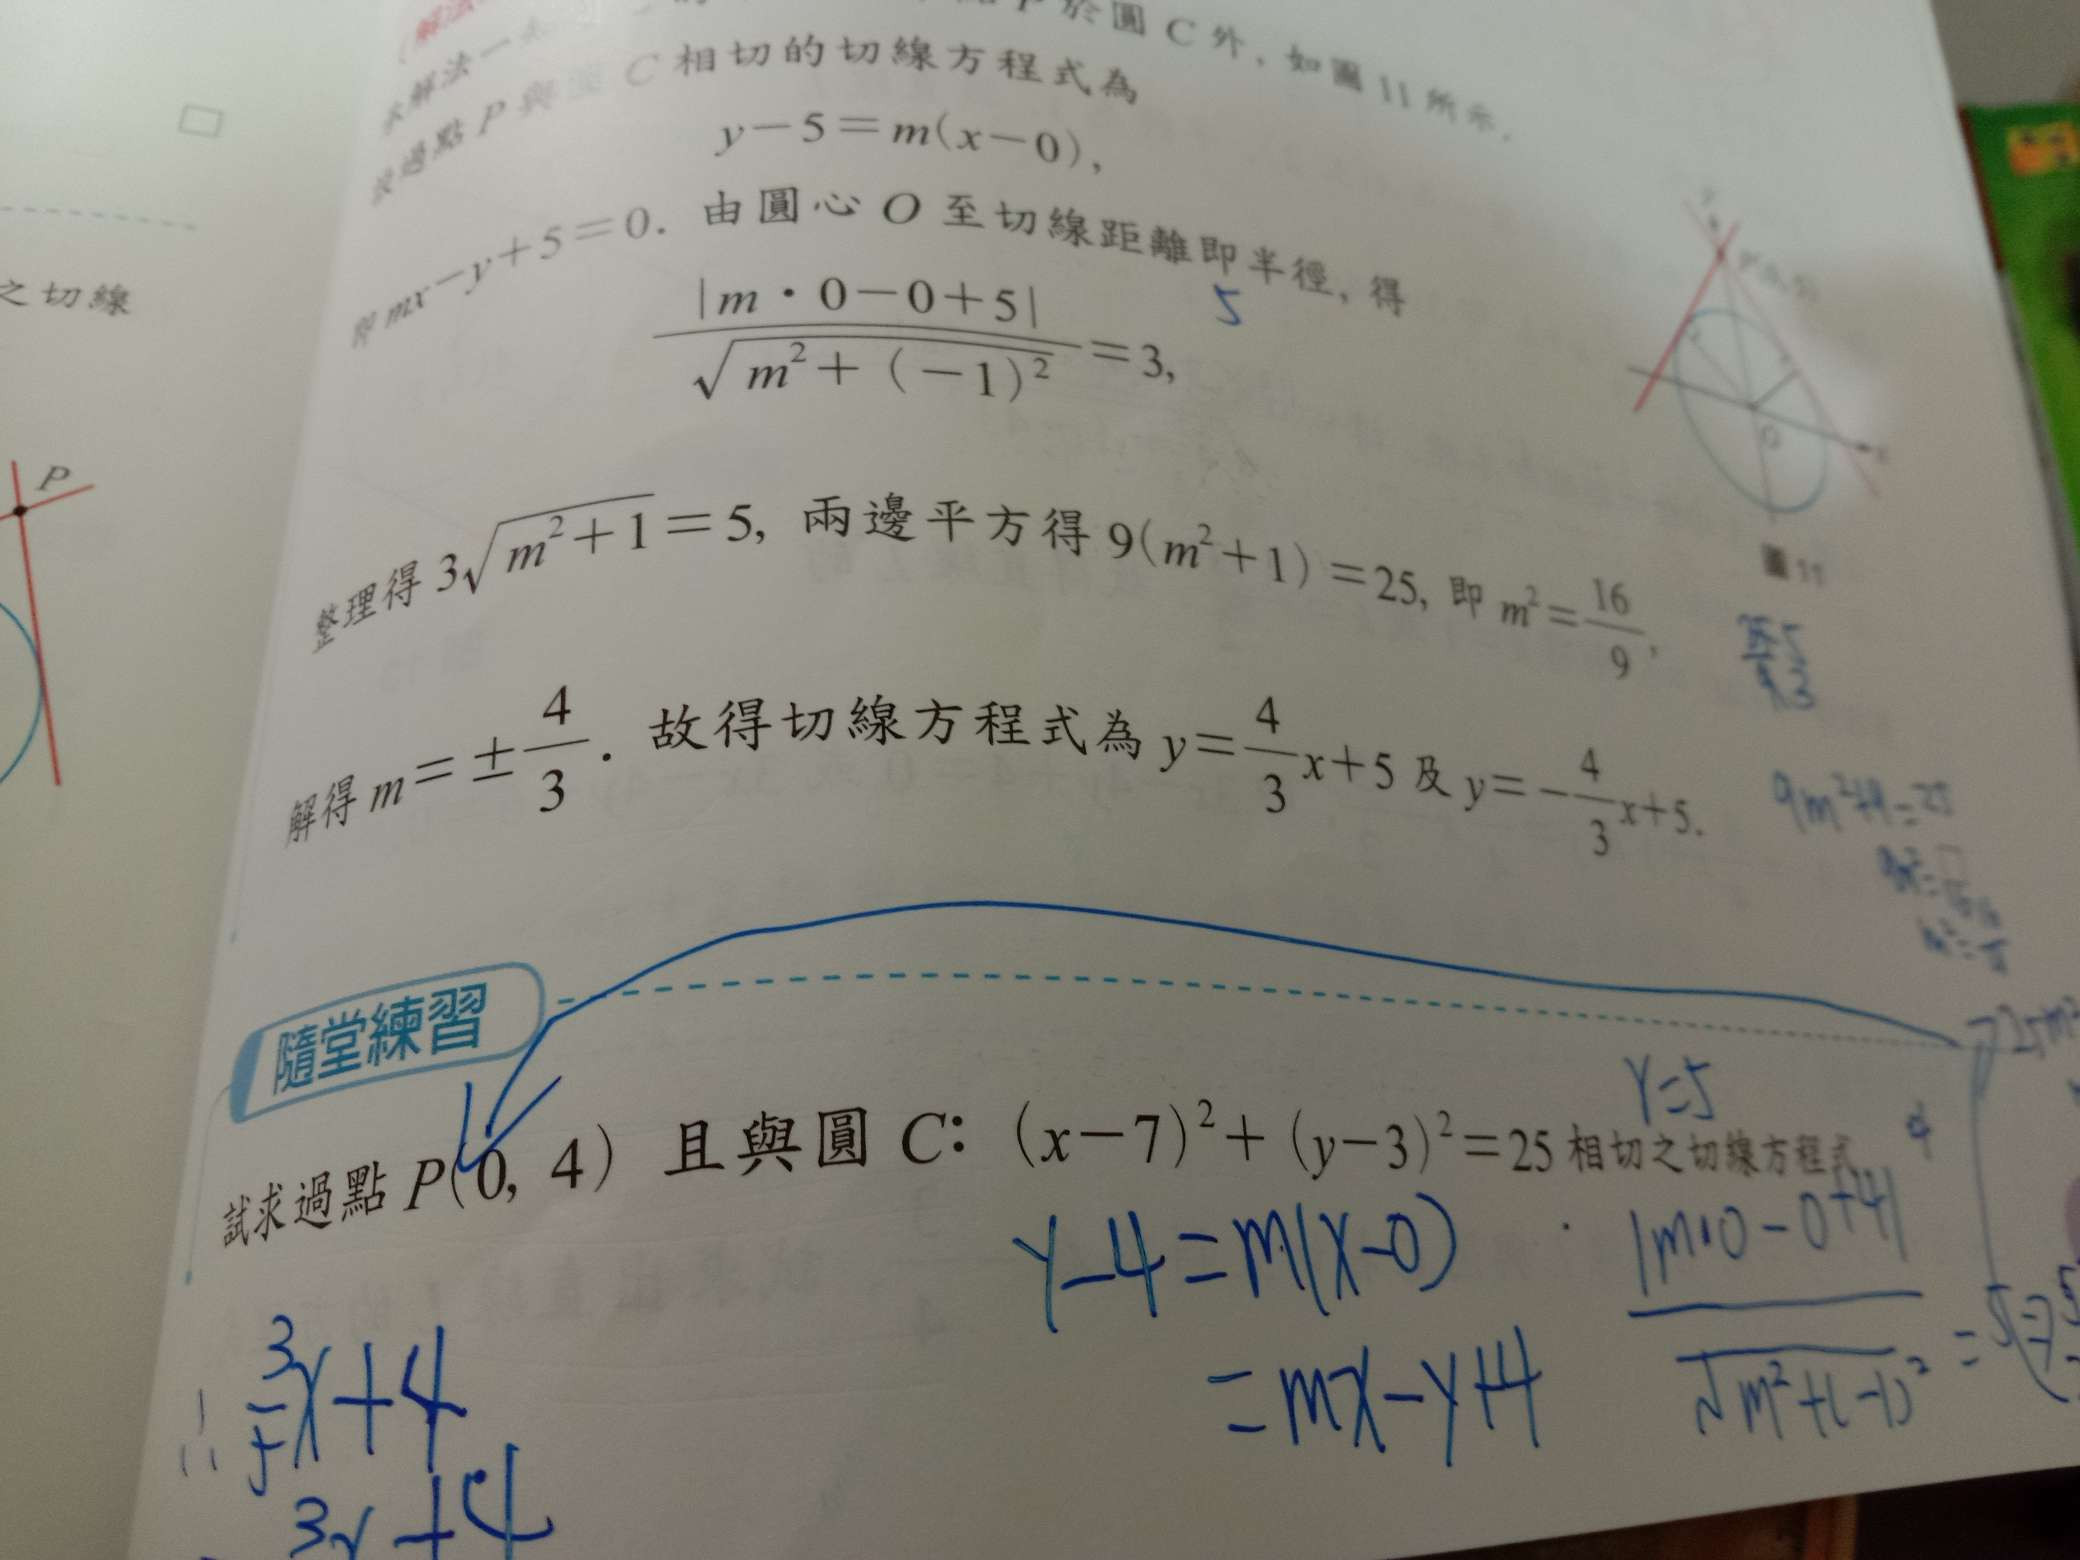 於圓 C 外，如圖 11 所示．
故過點 P 與圓 C 相切的切線方程式為
y－5＝m(x－0)，
即 mx－y＋5＝0．由圓心 O 至切線距離即半徑，得
5
|m・0－0＋5| / √(m²＋(－1)²) ＝3，
整理得 3√(m²＋1)＝5，兩邊平方得 9(m²＋1)＝25，即 m²＝16/9，
解得 m＝±4/3．故得切線方程式為 y＝4/3x＋5 及 y＝－4/3x＋5．
圖 11
9m²+9=25
之切線
P
O
隨堂練習
試求過點 P(0, 4) 且與圓 C：(x－7)²＋(y－3)²＝25 相切之切線方程式
y=5
y-4=m(x-0)
=mx-y+4
|m·0-0+4| / √m²+(-1)² =5
∴ 3/5x+4
3x+4